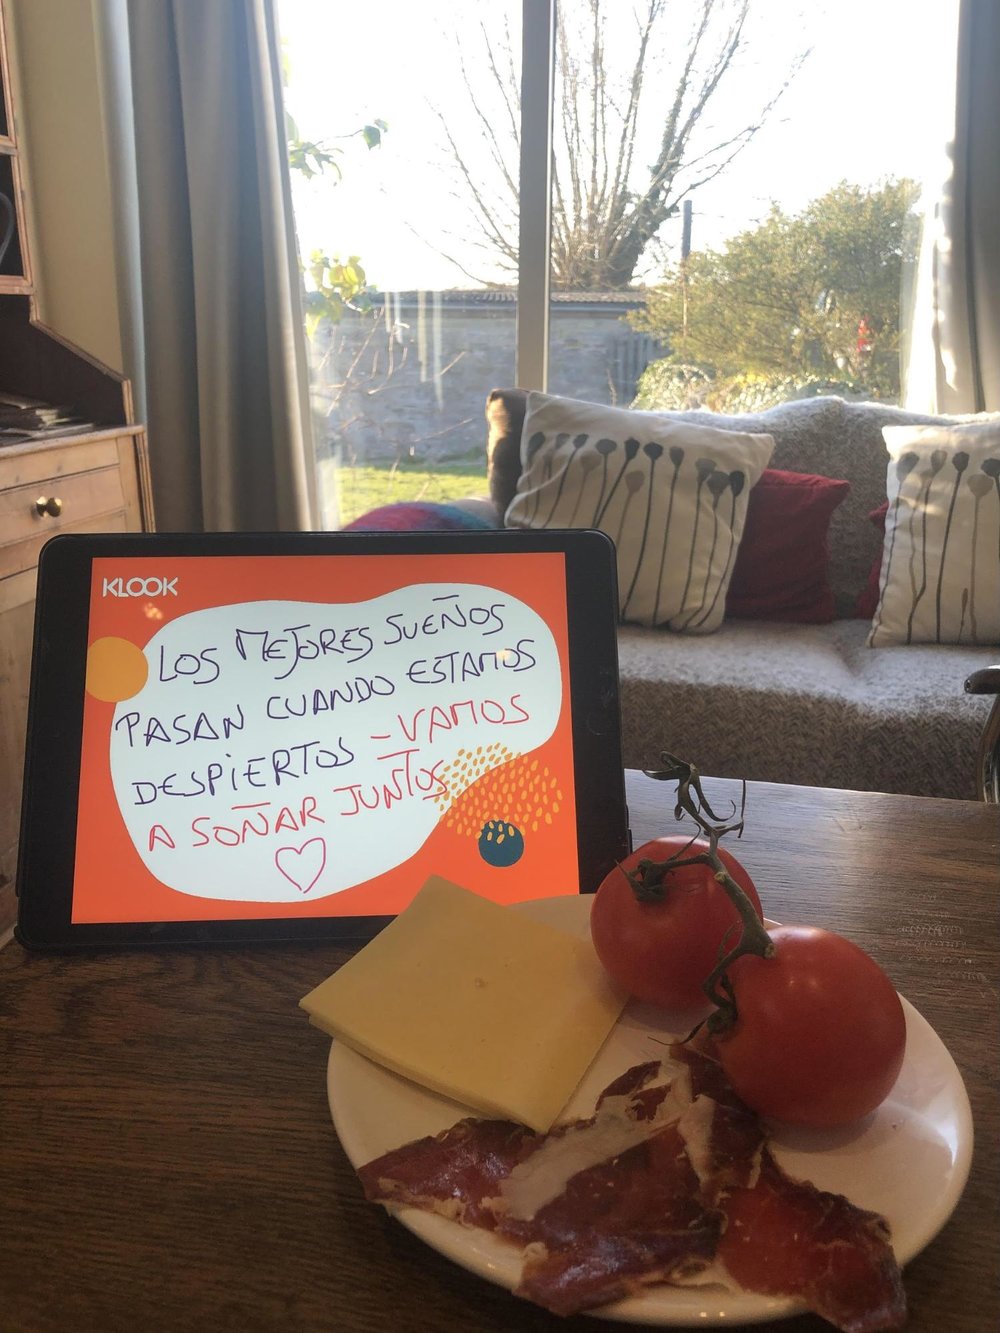 KLOOK
LOS MEJORES SUEÑOS
PASAN CUANDO ESTAMOS
DESPIERTOS - VAMOS
A SOÑAR JUNTOS